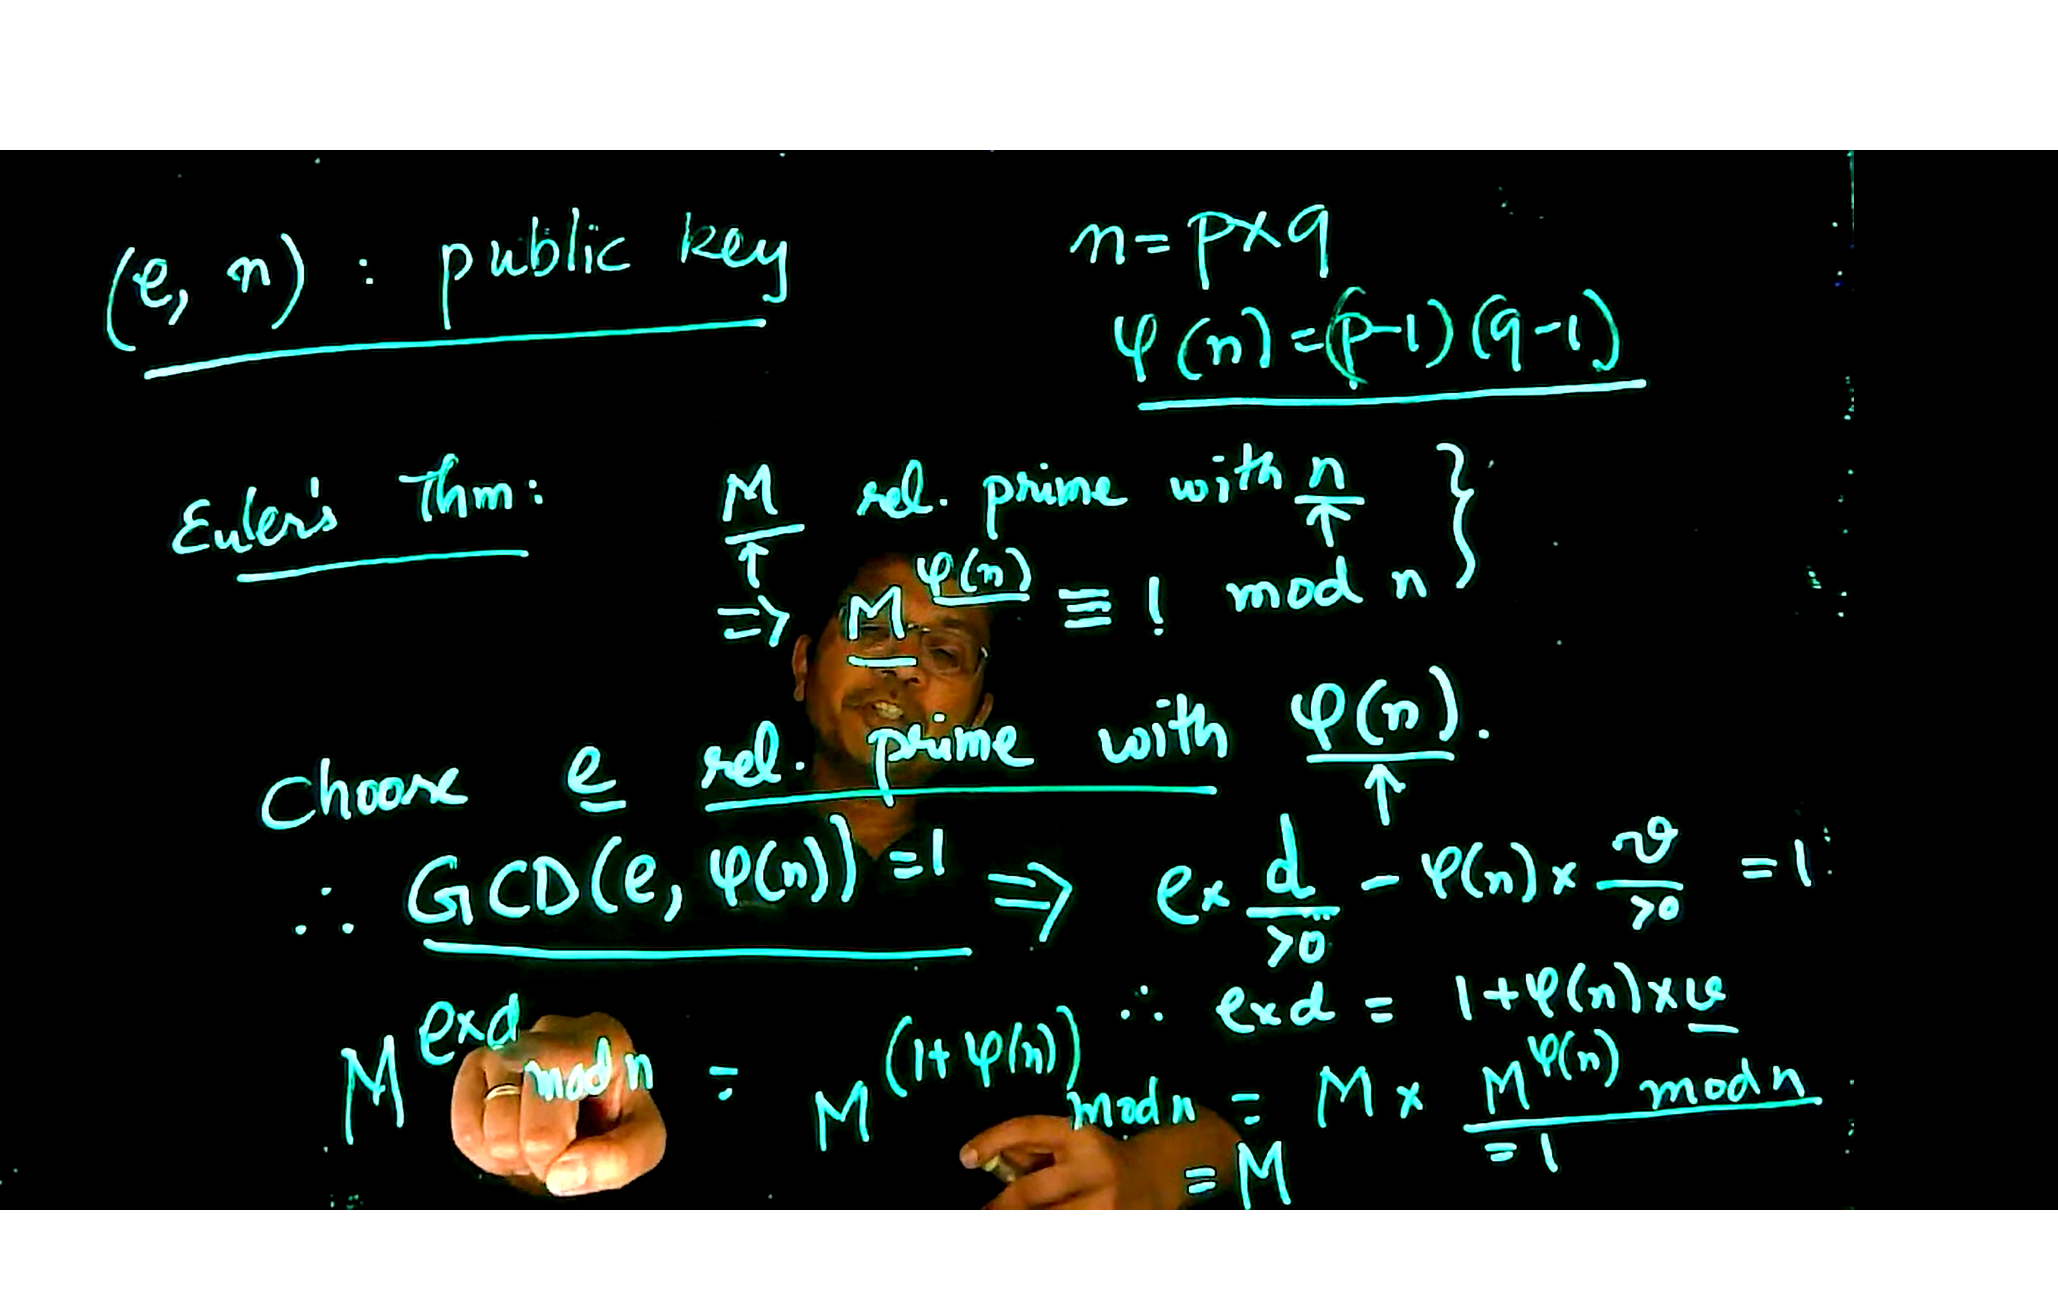 (e, n) : public key
n = p×q
φ(n) = (p-1)(q-1)
Euler's Thm: M rel. prime with n }
↑ ↑
=> M^φ(n) ≡ 1 mod n
Choose e rel. prime with φ(n).
↑
∴ GCD(e, φ(n)) = 1 => e× d - φ(n)× v = 1
>0 >0
∴ e×d = 1+φ(n)×v
M^e×d mod n = M^(1+φ(n)) mod n = M× M^φ(n) mod n
= M = 1